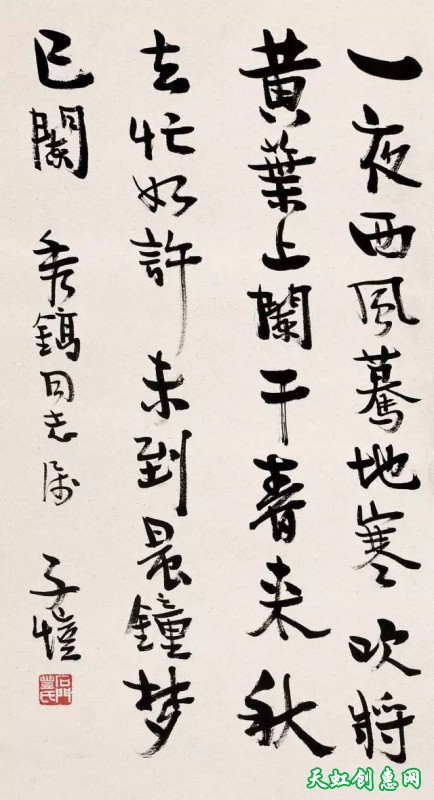 一夜西風驀地寒吹將
黄葉上闌干春来秋
去忙如許未到晨鐘夢
已闌
秀鎬同志屬
子愷
石門豐氏
天虹创惠网